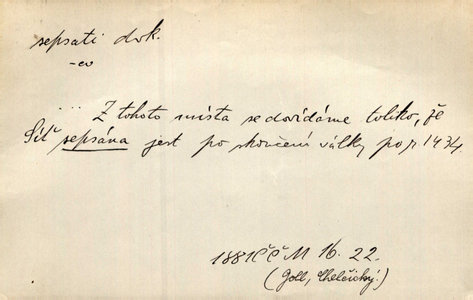 sepsati dok.
-co
... Z tohoto místa se dovídáme toliko, že
Síť sepsána jest po skončení války po r. 1434.
1881 ČČM 16. 22.
(Goll, Chelčický.)